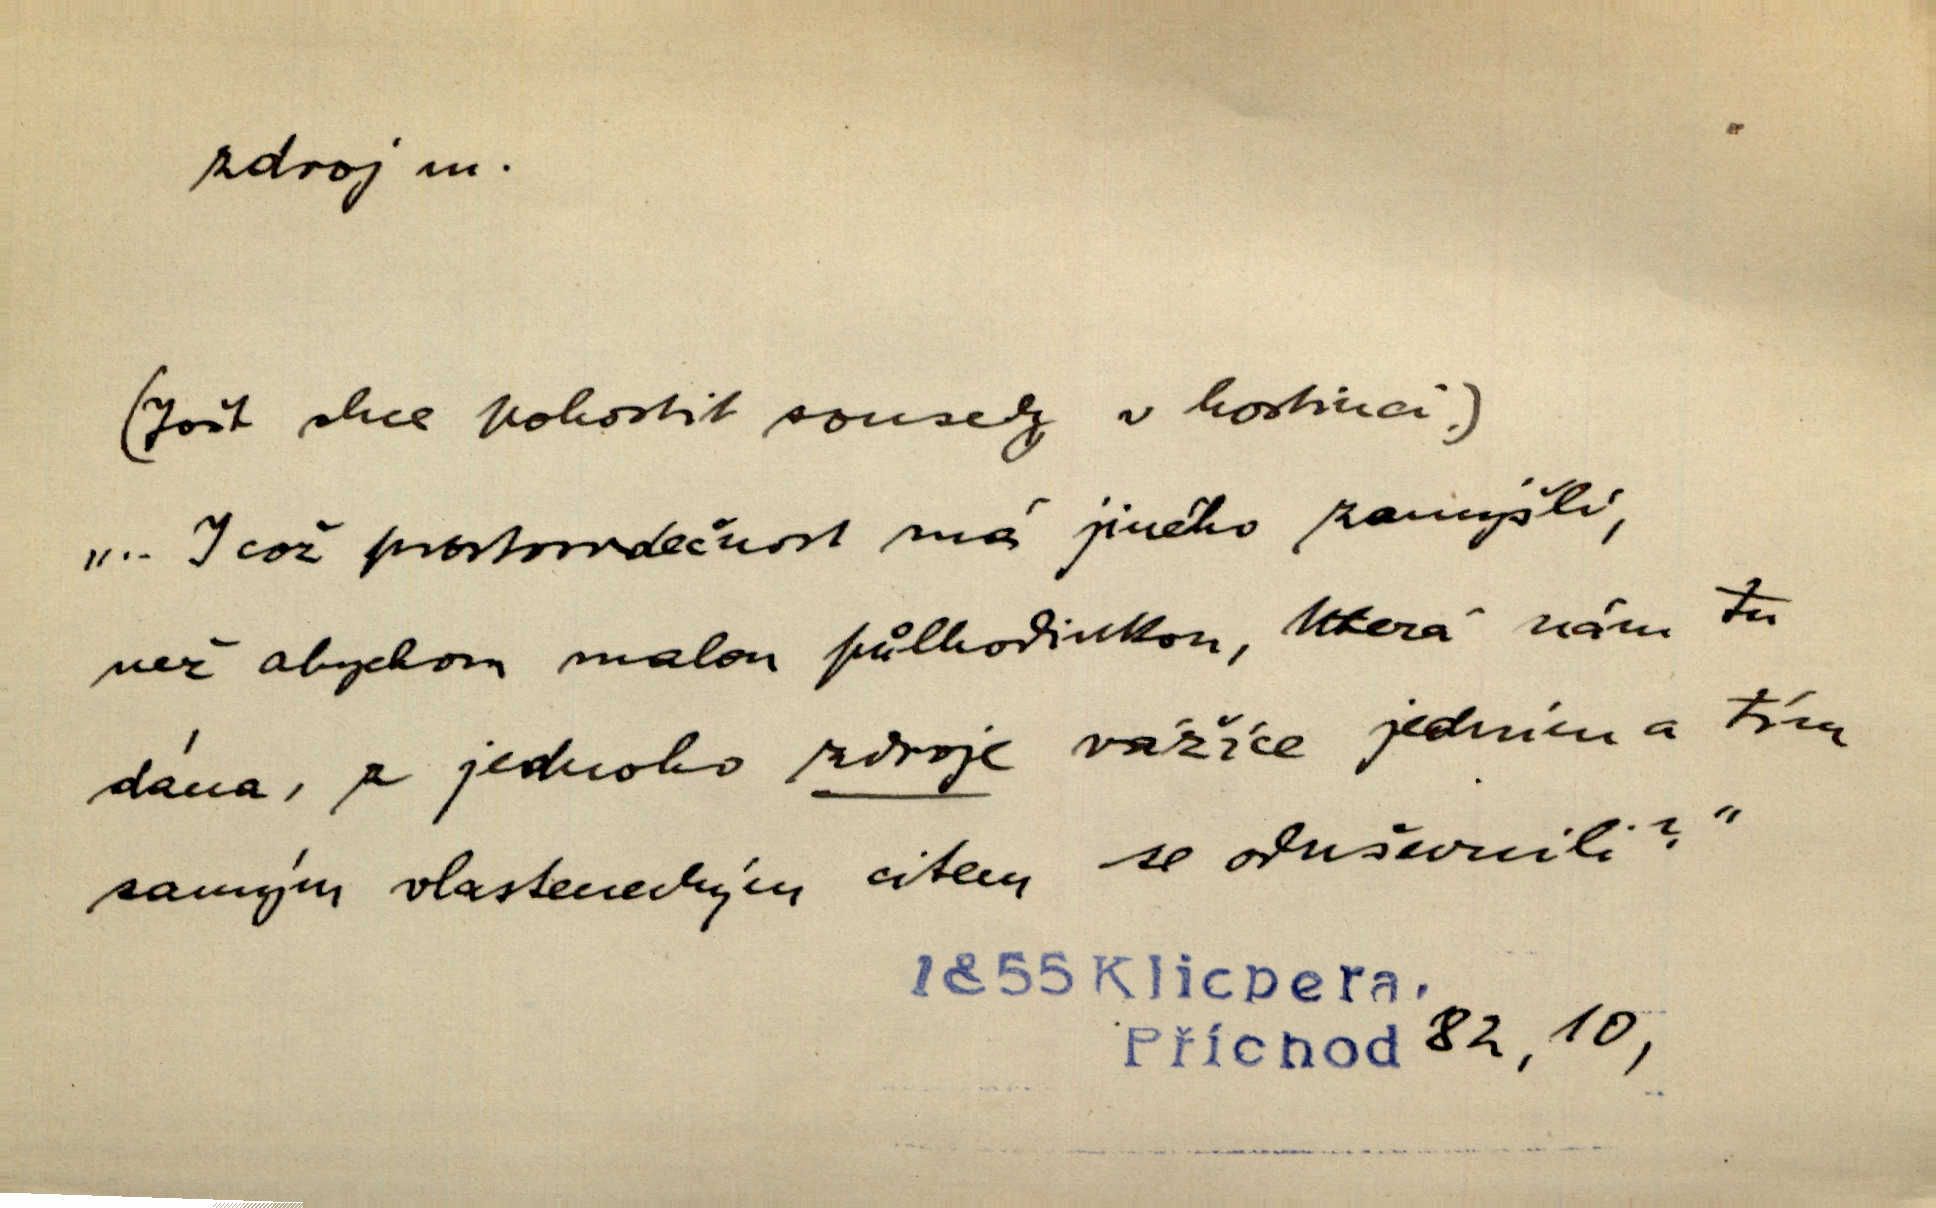 zdroj m.
(Jošt chce pohostit sousedy v hostinci.)
„.. I což prostosrdečnost má jiného zamýšlí,
než abychom malou půlhodinkou, která nám tu
dána, z jednoho zdroje vážíce jedním a tím
samým vlasteneckým citem se oduševnili?“
1855 Klicpera,
Příchod 82, 10,